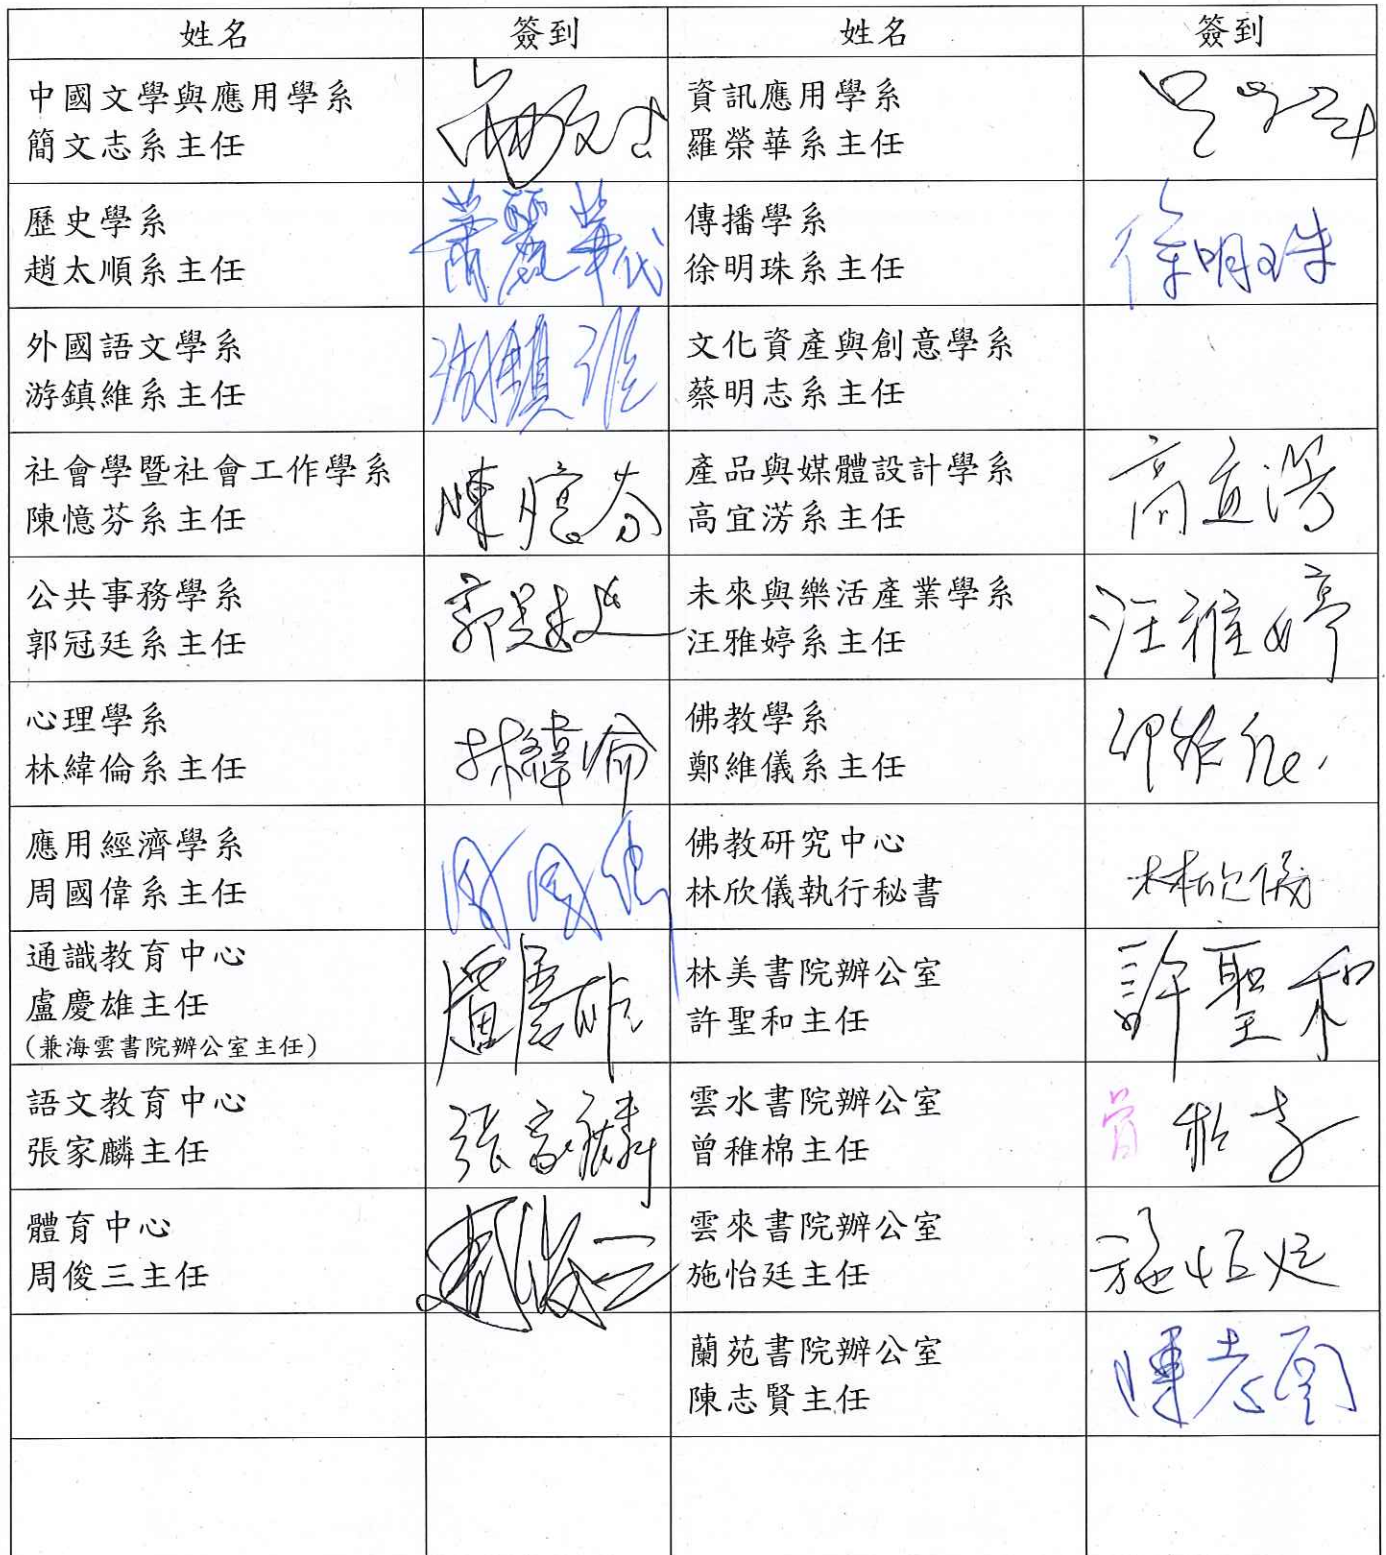 姓名 簽到 姓名 簽到
中國文學與應用學系
簡文志系主任
資訊應用學系
羅榮華系主任
歷史學系
趙太順系主任
蕭麗華代
傳播學系
徐明珠系主任
徐明珠
外國語文學系
游鎮維系主任
游鎮維
文化資產與創意學系
蔡明志系主任
社會學暨社會工作學系
陳憶芬系主任
陳憶芬
產品與媒體設計學系
高宜淓系主任
高宜淓
公共事務學系
郭冠廷系主任
未來與樂活產業學系
汪雅婷系主任
汪雅婷
心理學系
林緯倫系主任
林緯倫
佛教學系
鄭維儀系主任
應用經濟學系
周國偉系主任
周國偉
佛教研究中心
林欣儀執行秘書
林欣儀
通識教育中心
盧慶雄主任
(兼海雲書院辦公室主任)
盧慶雄
林美書院辦公室
許聖和主任
許聖和
語文教育中心
張家麟主任
張家麟
雲水書院辦公室
曾稚棉主任
體育中心
周俊三主任
雲來書院辦公室
施怡廷主任
施怡廷
蘭苑書院辦公室
陳志賢主任